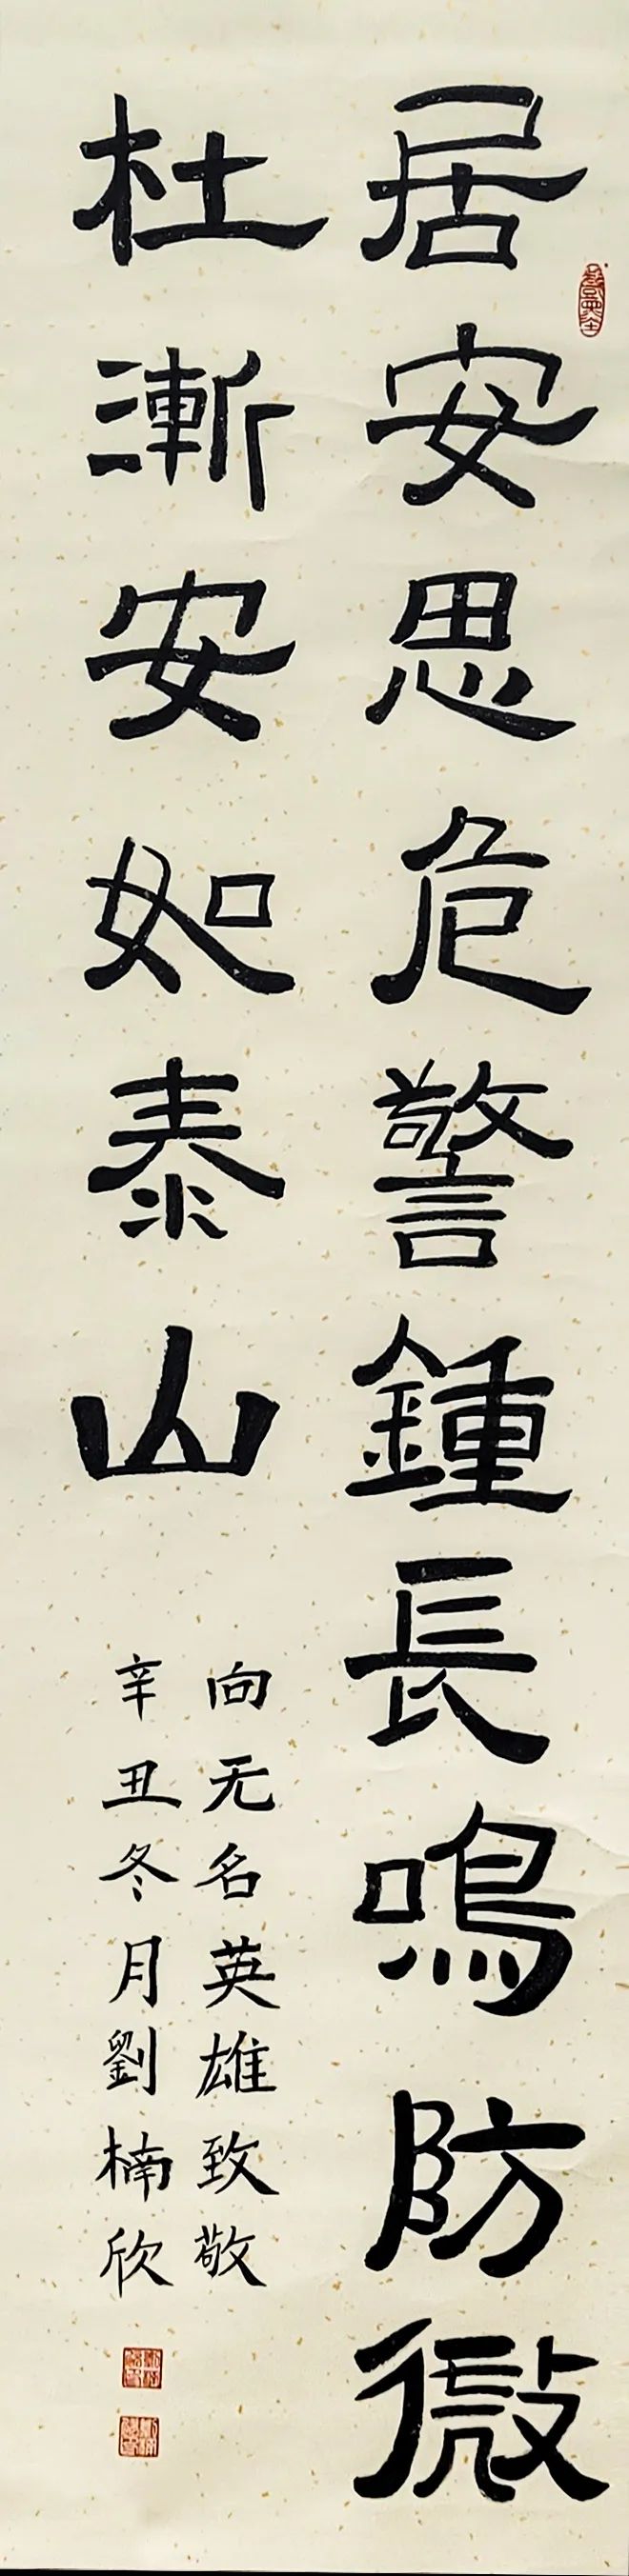 居安思危警鍾長鳴防微
杜漸安如泰山
向无名英雄致敬
辛丑冬月劉楠欣